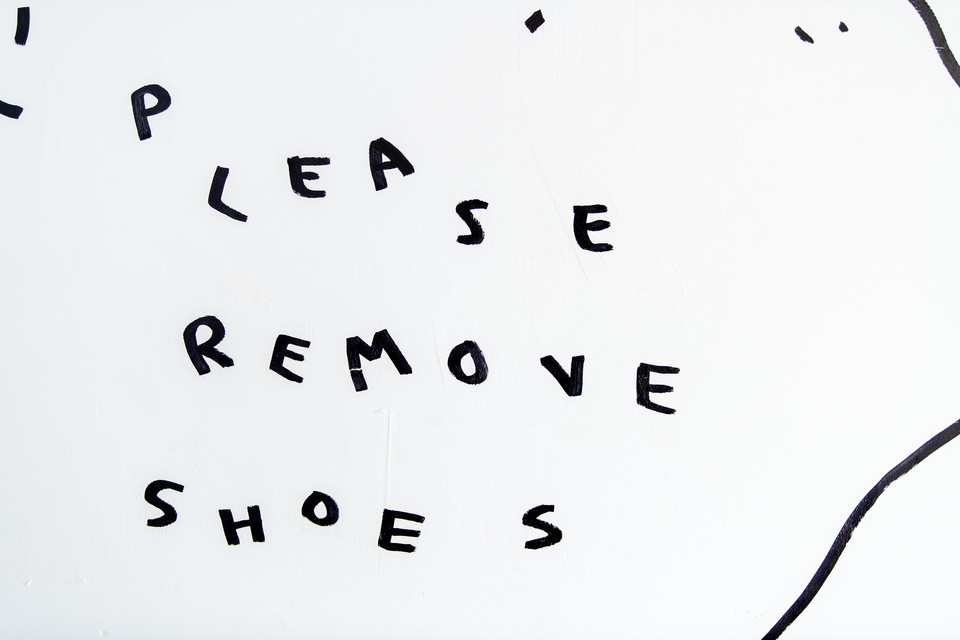 PLEASE
REMOVE
SHOES